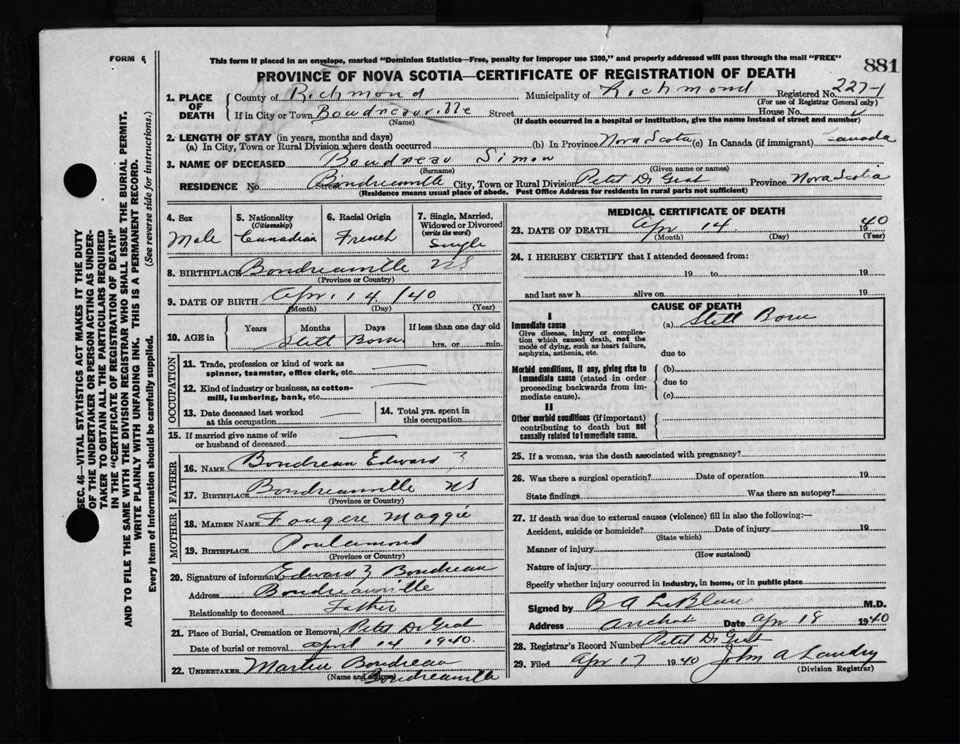 FORM 6
This form if placed in an envelope, marked "Dominion Statistics—Free, penalty for improper use $300," and properly addressed will pass through the mail "FREE"
PROVINCE OF NOVA SCOTIA—CERTIFICATE OF REGISTRATION OF DEATH
881
SEC. 46—VITAL STATISTICS ACT MAKES IT THE DUTY
OF THE UNDERTAKER OR PERSON ACTING AS UNDER-
TAKER TO OBTAIN ALL THE PARTICULARS REQUIRED
IN THE "CERTIFICATE OF REGISTRATION OF DEATH"
AND TO FILE THE SAME WITH THE DIVISION REGISTRAR WHO SHALL ISSUE THE BURIAL PERMIT.
WRITE PLAINLY WITH UNFADING INK. THIS IS A PERMANENT RECORD.
Every item of information should be carefully supplied. (See reverse side for instructions.)
1. PLACE OF DEATH
County of Richmond Municipality of Richmond Registered No. 227-1
(For use of Registrar General only)
If in City or Town Boudreauville Street House No.
(Name) (If death occurred in a hospital or institution, give the name instead of street and number)
2. LENGTH OF STAY (in years, months and days)
(a) In City, Town or Rural Division where death occurred (b) In Province Nova Scotia (c) In Canada (if immigrant) Canada
3. NAME OF DECEASED Boudreau Simon
(Surname) (Given name or names)
RESIDENCE No. Street Boudreauville City, Town or Rural Division Petit De Grat Province Nova Scotia
(Residence means usual place of abode. Post Office Address for residents in rural parts not sufficient)
4. Sex
Male
5. Nationality
(Citizenship)
Canadian
6. Racial Origin
French
7. Single, Married,
Widowed or Divorced
(write the word)
Single
8. BIRTHPLACE Boudreauville NS
(Province or Country)
9. DATE OF BIRTH Apr. 14 /40
(Month) (Day) (Year)
10. AGE in
Years
Months
Days
If less than one day old
Still Born.
hrs. or min.
OCCUPATION
11. Trade, profession or kind of work as
spinner, teamster, office clerk, etc.
12. Kind of industry or business, as cotton-
mill, lumbering, bank, etc.
13. Date deceased last worked
at this occupation
14. Total yrs. spent in
this occupation
15. If married give name of wife
or husband of deceased
FATHER
16. NAME Boudreau Edward Z
17. BIRTHPLACE Boudreauville NS
(Province or Country)
MOTHER
18. MAIDEN NAME Fougere Maggie
19. BIRTHPLACE Poulamond
(Province or Country)
20. Signature of informant Edward Z Boudreau
Address Boudreauville
Relationship to deceased Father
21. Place of Burial, Cremation or Removal Petit De Grat
Date of burial or removal April 14 1940.
22. UNDERTAKER Boudreau
(Name and Address) Boudreauville
MEDICAL CERTIFICATE OF DEATH
23. DATE OF DEATH Apr 14 1940
(Month) (Day) (Year)
24. I HEREBY CERTIFY that I attended deceased from:
19 to 19
and last saw h alive on 19
CAUSE OF DEATH
I
Immediate cause
Give disease, injury or complica-
tion which caused death, not the
mode of dying, such as heart failure,
asphyxia, asthenia, etc.
(a) Still Born
due to
Morbid conditions, if any, giving rise to
immediate cause (stated in order
proceeding backwards from im-
mediate cause).
(b)
due to
(c)
II
Other morbid conditions (if important)
contributing to death but not
causally related to immediate cause.
25. If a woman, was the death associated with pregnancy?
26. Was there a surgical operation? Date of operation 19
State findings Was there an autopsy?
27. If death was due to external causes (violence) fill in also the following:—
Accident, suicide or homicide? Date of injury 19
(State which)
Manner of injury
(How sustained)
Nature of injury
Specify whether injury occurred in industry, in home, or in public place
Signed by B A LeBlanc M.D.
Address Arichat Date Apr 18 1940
28. Registrar's Record Number Petit De Grat
29. Filed Apr 17 1940 John A Landry
(Division Registrar)